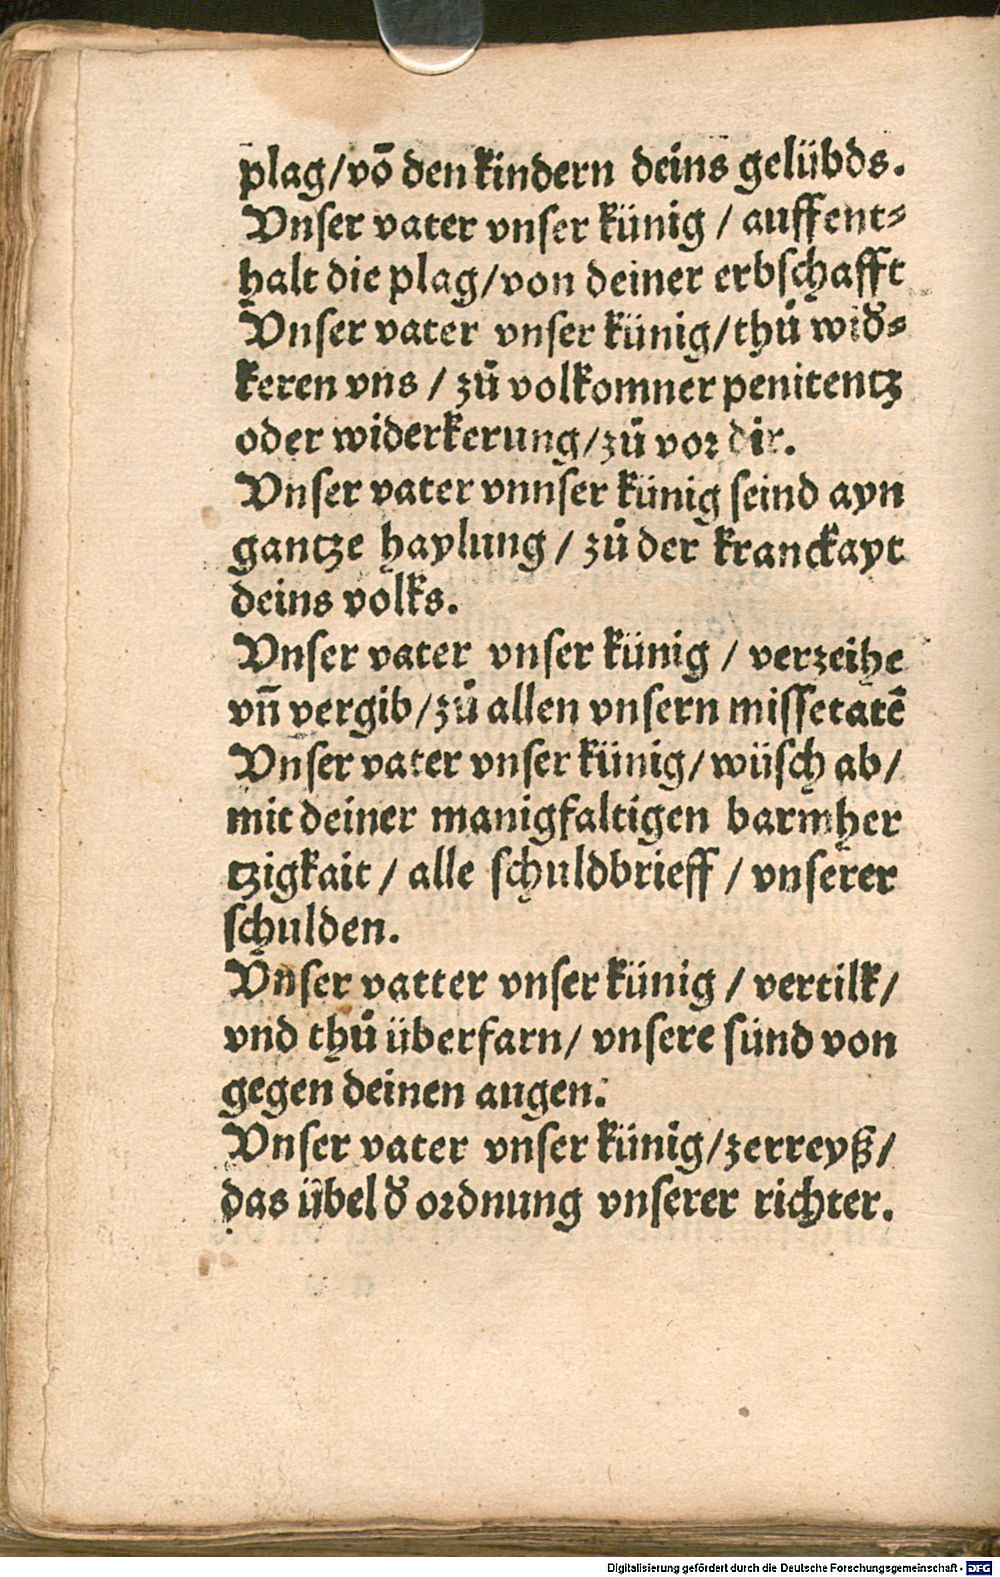 plag/vō den kindern deins gelübds.
Vnser vater vnser künig / auffent⸗
halt die plag/von deiner erbschafft
Vnser vater vnser künig/thů wid̕⸗
keren vns / zů volkomner penitentz
oder widerkerung/zů vor dir.
Vnser vater vnnser künig seind ayn
gantze haylung / zů der kranckayt
deins volks.
Vnser vater vnser künig / verzeihe
vñ vergib/zů allen vnsern missetatē
Vnser vater vnser künig/wüsch ab/
mit deiner manigfaltigen barmher
tzigkait / alle schuldbrieff / vnserer
schulden.
Vnser vatter vnser künig / vertilk/
vnd thů überfarn/ vnsere sünd von
gegen deinen augen.
Vnser vater vnser künig/zerreyß/
das übel d̕ ordnung vnserer richter.
Digitalisierung gefördert durch die Deutsche Forschungsgemeinschaft - DFG